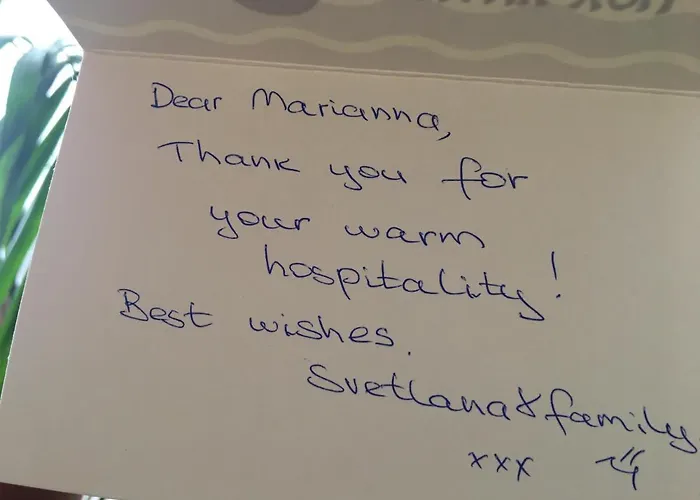 Dear Marianna,
Thank you for
your warm
hospitality!
Best wishes.
Svetlana & family
xxx